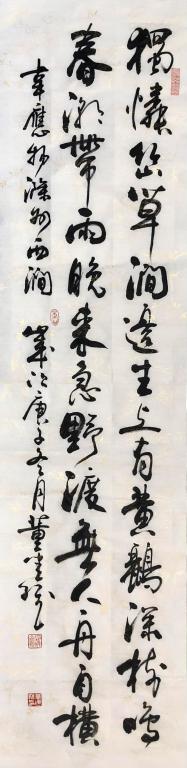 獨憐幽草澗邊生上有黃鸝深樹鳴
春潮帶雨晚來急野渡無人舟自橫
韋應物滁州西澗 歲次庚子冬月董